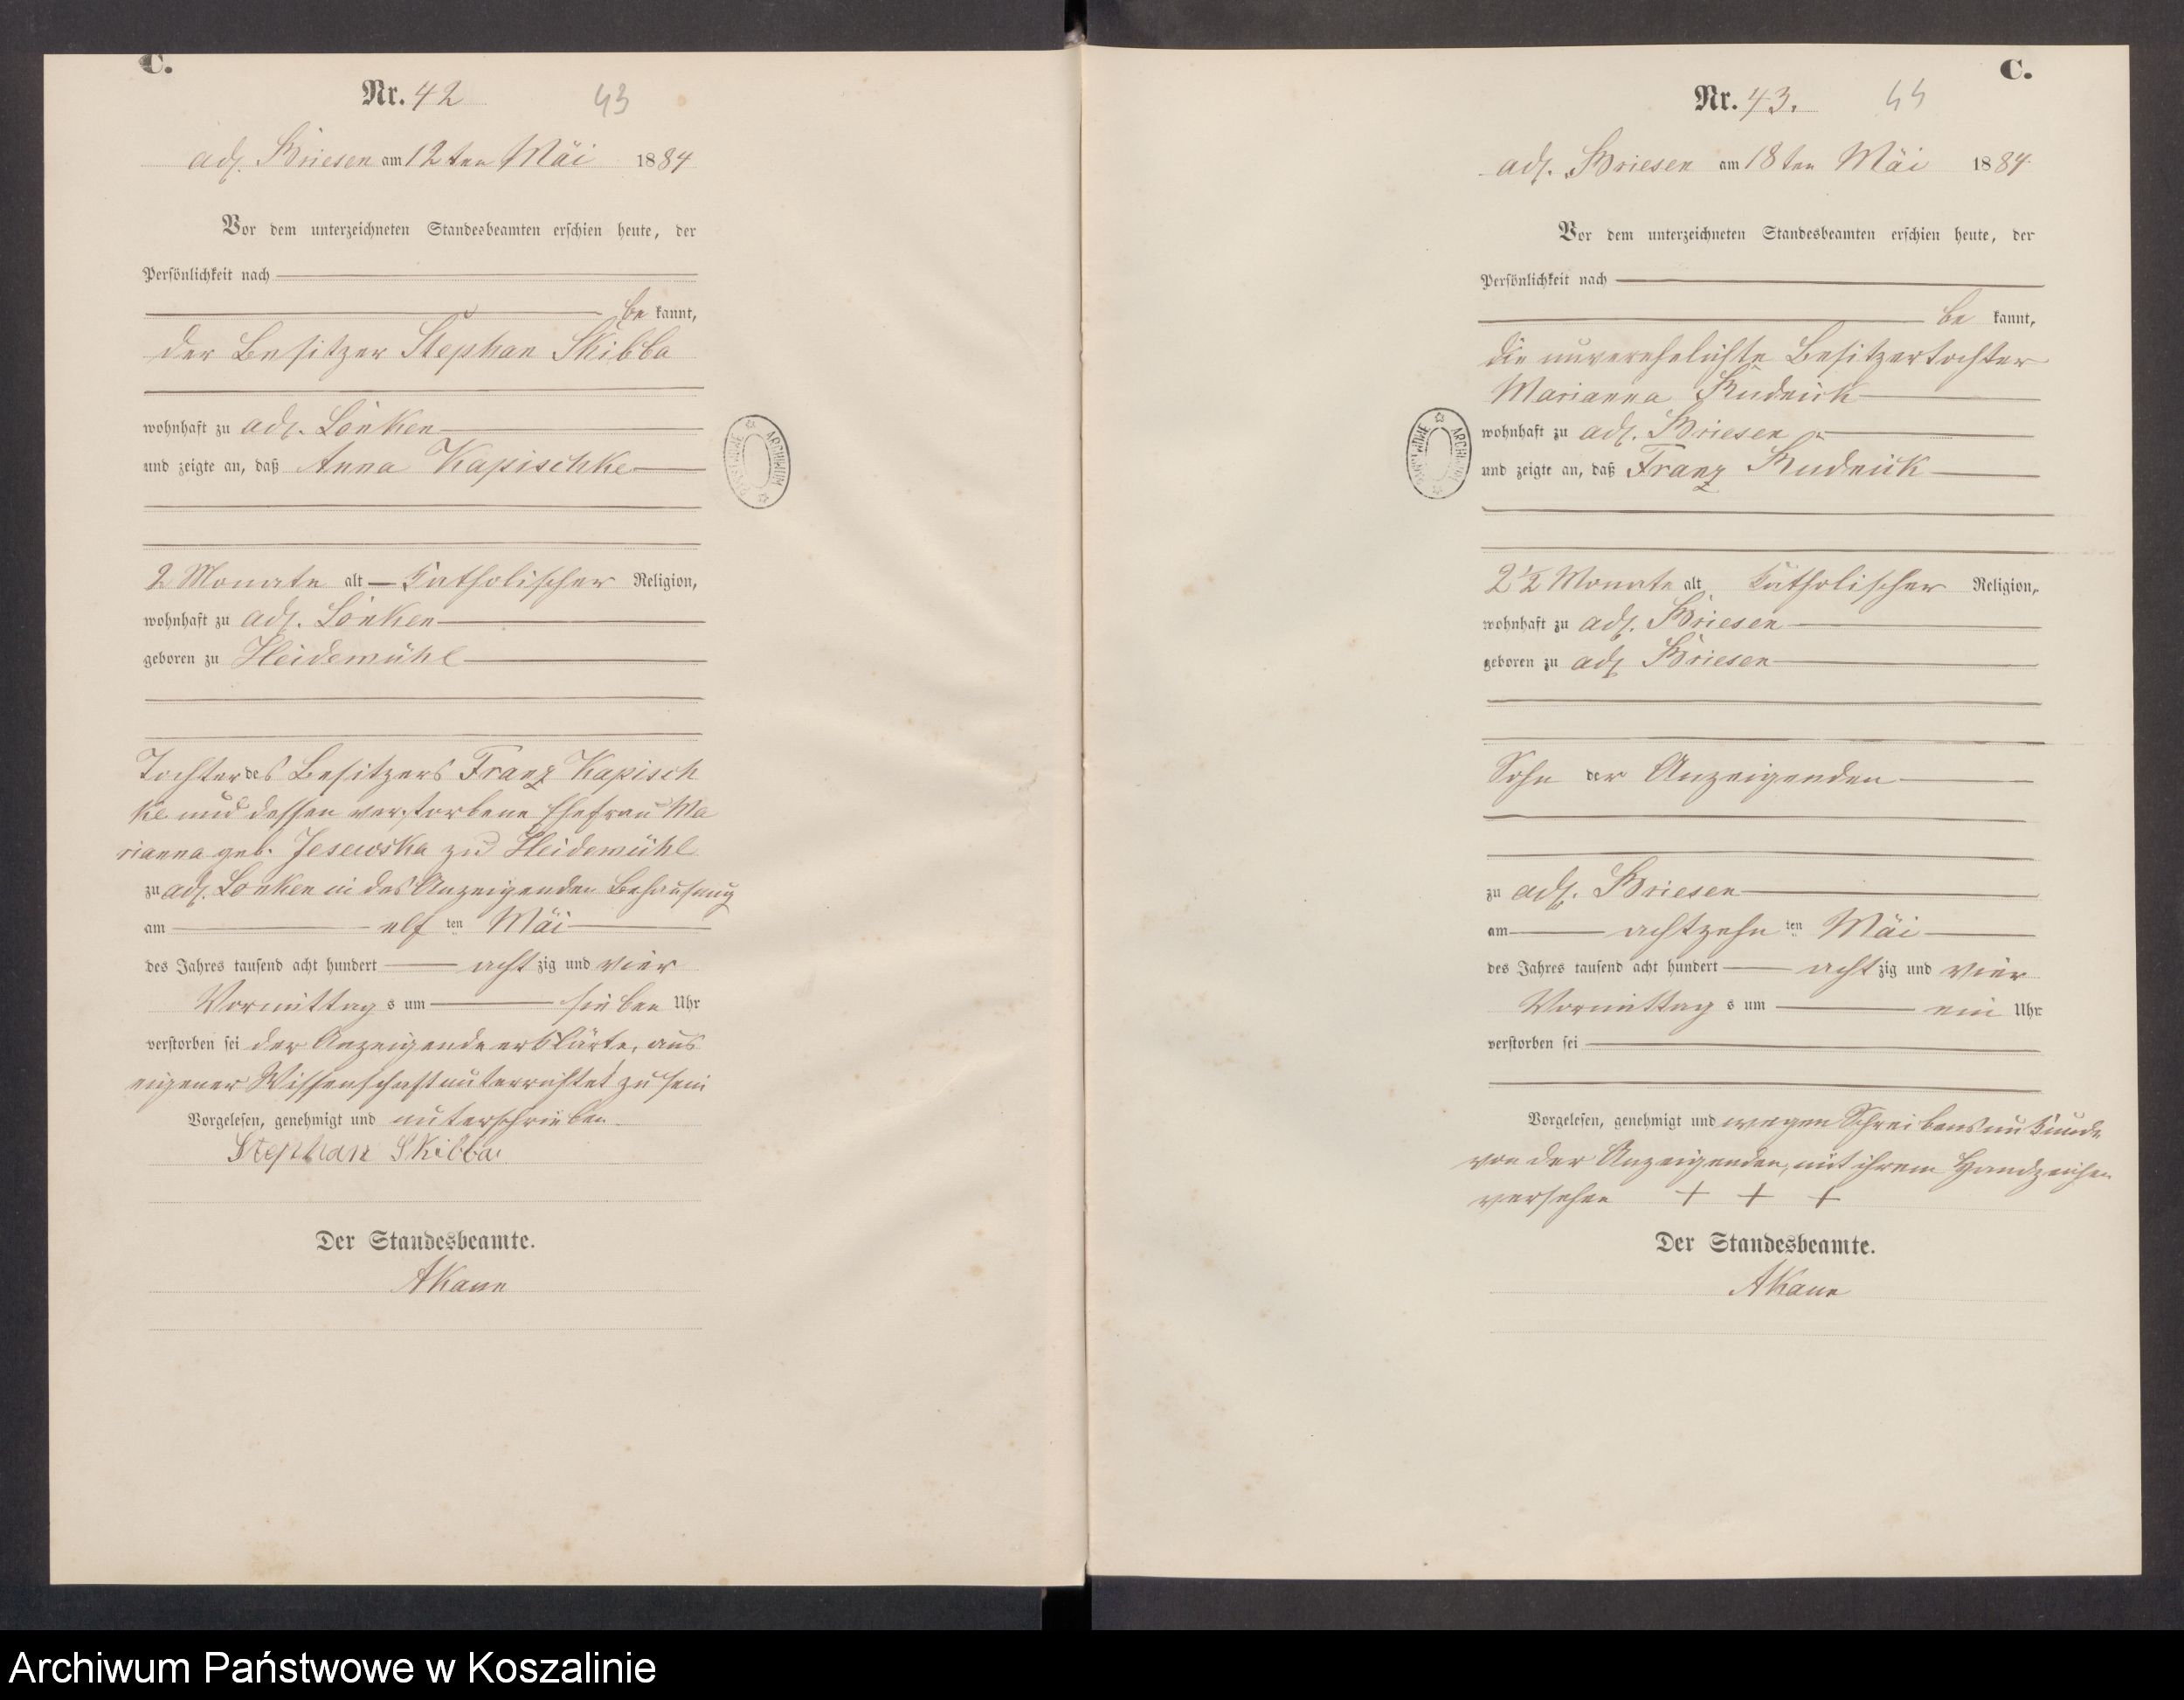 C.
Nr. 42 43
adl. Briesen am 12ten Mäi 1884
Vor dem unterzeichneten Standesbeamten erschien heute, der
Persönlichkeit nach
be kannt,
der Besitzer Stephan Skibba
wohnhaft zu adl. Lonken
und zeigte an, daß Anna Kapischke
2 Monate alt katholischer Religion,
wohnhaft zu adl. Lonken
geboren zu Heidemühl
Tochter des Besitzers Franz Kapisch
ke und dessen verstorbene Ehefrau Ma
rianna geb. Jesewska zu Heidemühl
zu adl. Lonken in des Anzeigenden Behausung
am elf ten Mäi
des Jahres tausend acht hundert acht zig und vier
Vormittag s um sieben Uhr
verstorben sei der Anzeigende erklärte, aus
eigener Wissenschaft unterrichtet zu sein
Vorgelesen, genehmigt und unterschrieben
Stephan Skibba
Der Standesbeamte.
AKaun
ARCHIWUM PAŃSTWOWE
C.
Nr. 43. 44
adl. Briesen am 18ten Mäi 1884
Vor dem unterzeichneten Standesbeamten erschien heute, der
Persönlichkeit nach
be kannt,
die unverehelichte Besitzertochter
Marianna Rudnik
wohnhaft zu adl. Briesen
und zeigte an, daß Franz Rudnik
2 1/2 Monate alt katholischer Religion,
wohnhaft zu adl. Briesen
geboren zu adl Briesen
Sohn der Anzeigenden
zu adl. Briesen
am achtzehn ten Mäi
des Jahres tausend acht hundert acht zig und vier
Vormittag s um ein Uhr
verstorben sei
Vorgelesen, genehmigt und wegen Schreibensunkunde
von der Anzeigenden, mit ihrem Handzeichen
versehen + + +
Der Standesbeamte.
AKaun
ARCHIWUM PAŃSTWOWE
Archiwum Państwowe w Koszalinie